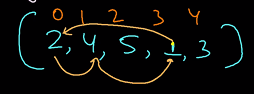 0 1 2 3 4
(2, 4, 5, 1, 3)